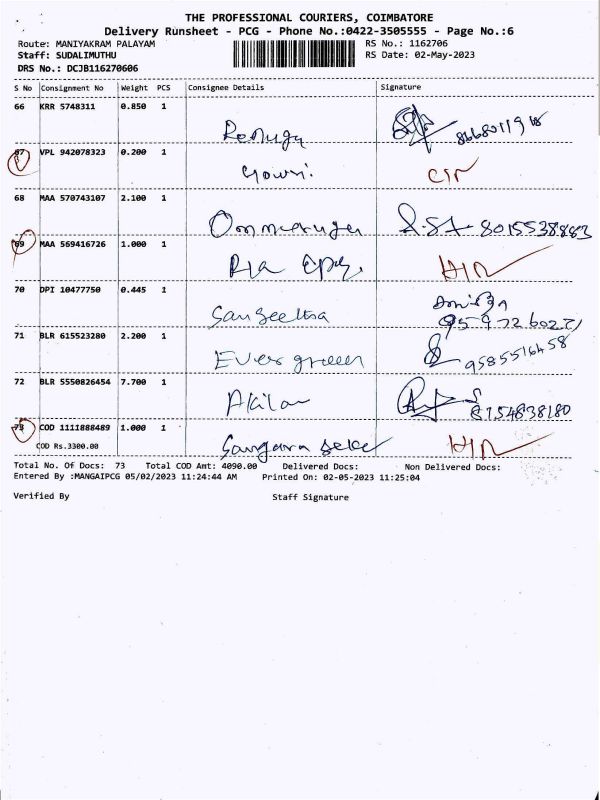 THE PROFESSIONAL COURIERS, COIMBATORE
Delivery Runsheet - PCG - Phone No.:0422-3505555 - Page No.:6
Route: MANIYAKRAM PALAYAM RS No.: 1162706
Staff: SUDALIMUTHU RS Date: 02-May-2023
DRS No.: DCJB116270606
S No Consignment No Weight PCS Consignee Details Signature
66 KRR 5748311 0.850 1
Renuga
67 VPL 942078323 0.200 1
Gowri.
68 MAA 570743107 2.100 1
Ommuruga 8015538883
69 MAA 569416726 1.000 1
Ria
70 DPI 10477750 0.445 1
Sangeetha
71 BLR 615523280 2.200 1
Evergreen 9585516458
72 BLR 5550826454 7.700 1
Akilan 8154838180
73 COD 1111888489 1.000 1
COD Rs.3300.00
Total No. Of Docs: 73 Total COD Amt: 4090.00 Delivered Docs: Non Delivered Docs:
Entered By :MANGAIPCG 05/02/2023 11:24:44 AM Printed On: 02-05-2023 11:25:04
Verified By Staff Signature